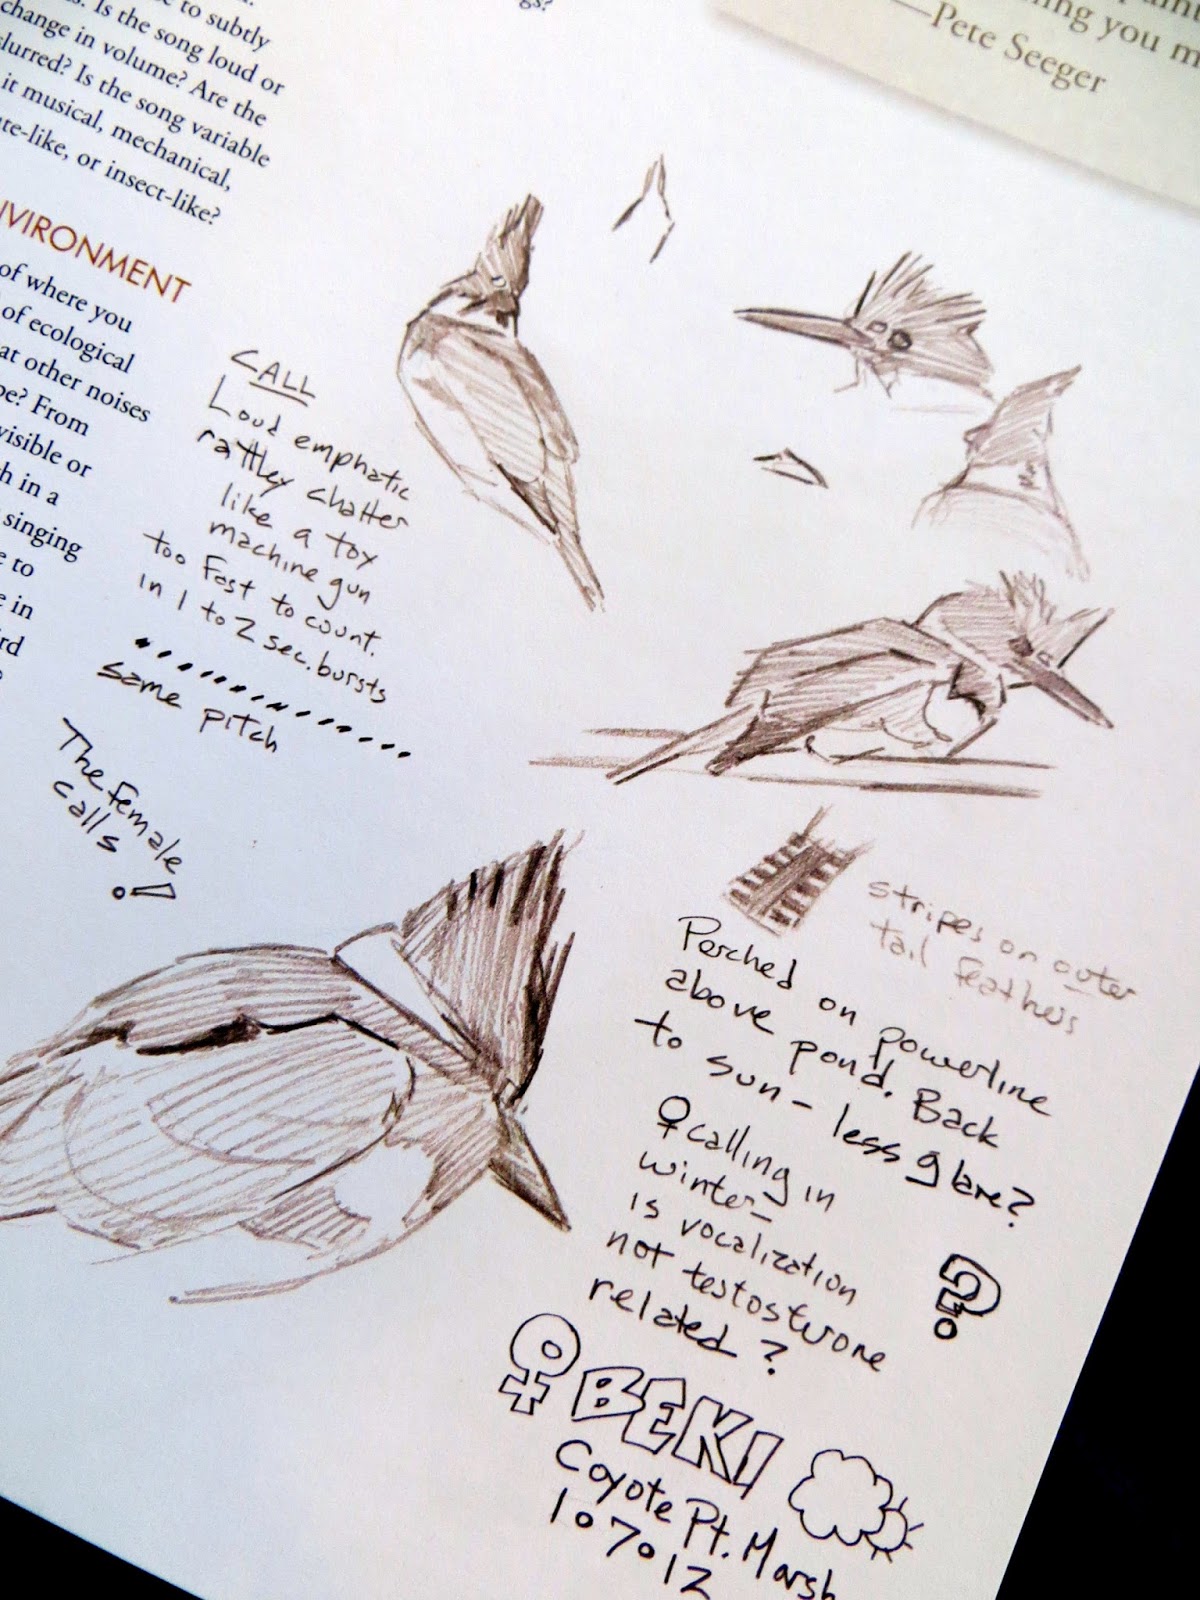 to subtly
Is the song loud or
change in volume? Are the
slurred? Is the song variable
it musical, mechanical,
or insect-like?
of where you
of ecological
other noises
From
visible or
in a
singing
to
in
you m
—Pete Seeger
CALL
Loud emphatic
rattley chatter
like a toy
machine gun
too fast to count.
in 1 to 2 sec. bursts
same pitch
The female
calls !
stripes on outer
tail feathers
Perched on powerline
above pond. Back
to sun – less glare?
♀ calling in
winter –
is vocalization
not testosterone
related ?
?
♀ BEKI
Coyote Pt. Marsh
1 o 7 o 12